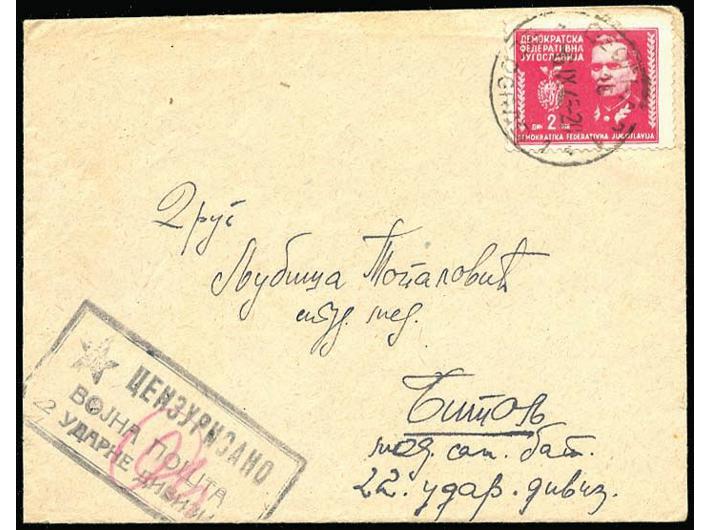 ДЕМОКРАТСКА
ФЕДЕРАТИВНА
ЈУГОСЛАВИЈА
ДИН 2
DEMOKRATSKA FEDERATIVNA JUGOSLAVIJA
Друг
Љубица Топаловић
студ. мед.
Битољ
мед. сан. бат.
22. удар. дивиз.
ЦЕНЗУРИСАНО
ВОЈНА ПОШТА
2 УДАРНЕ ДИВИЗИ